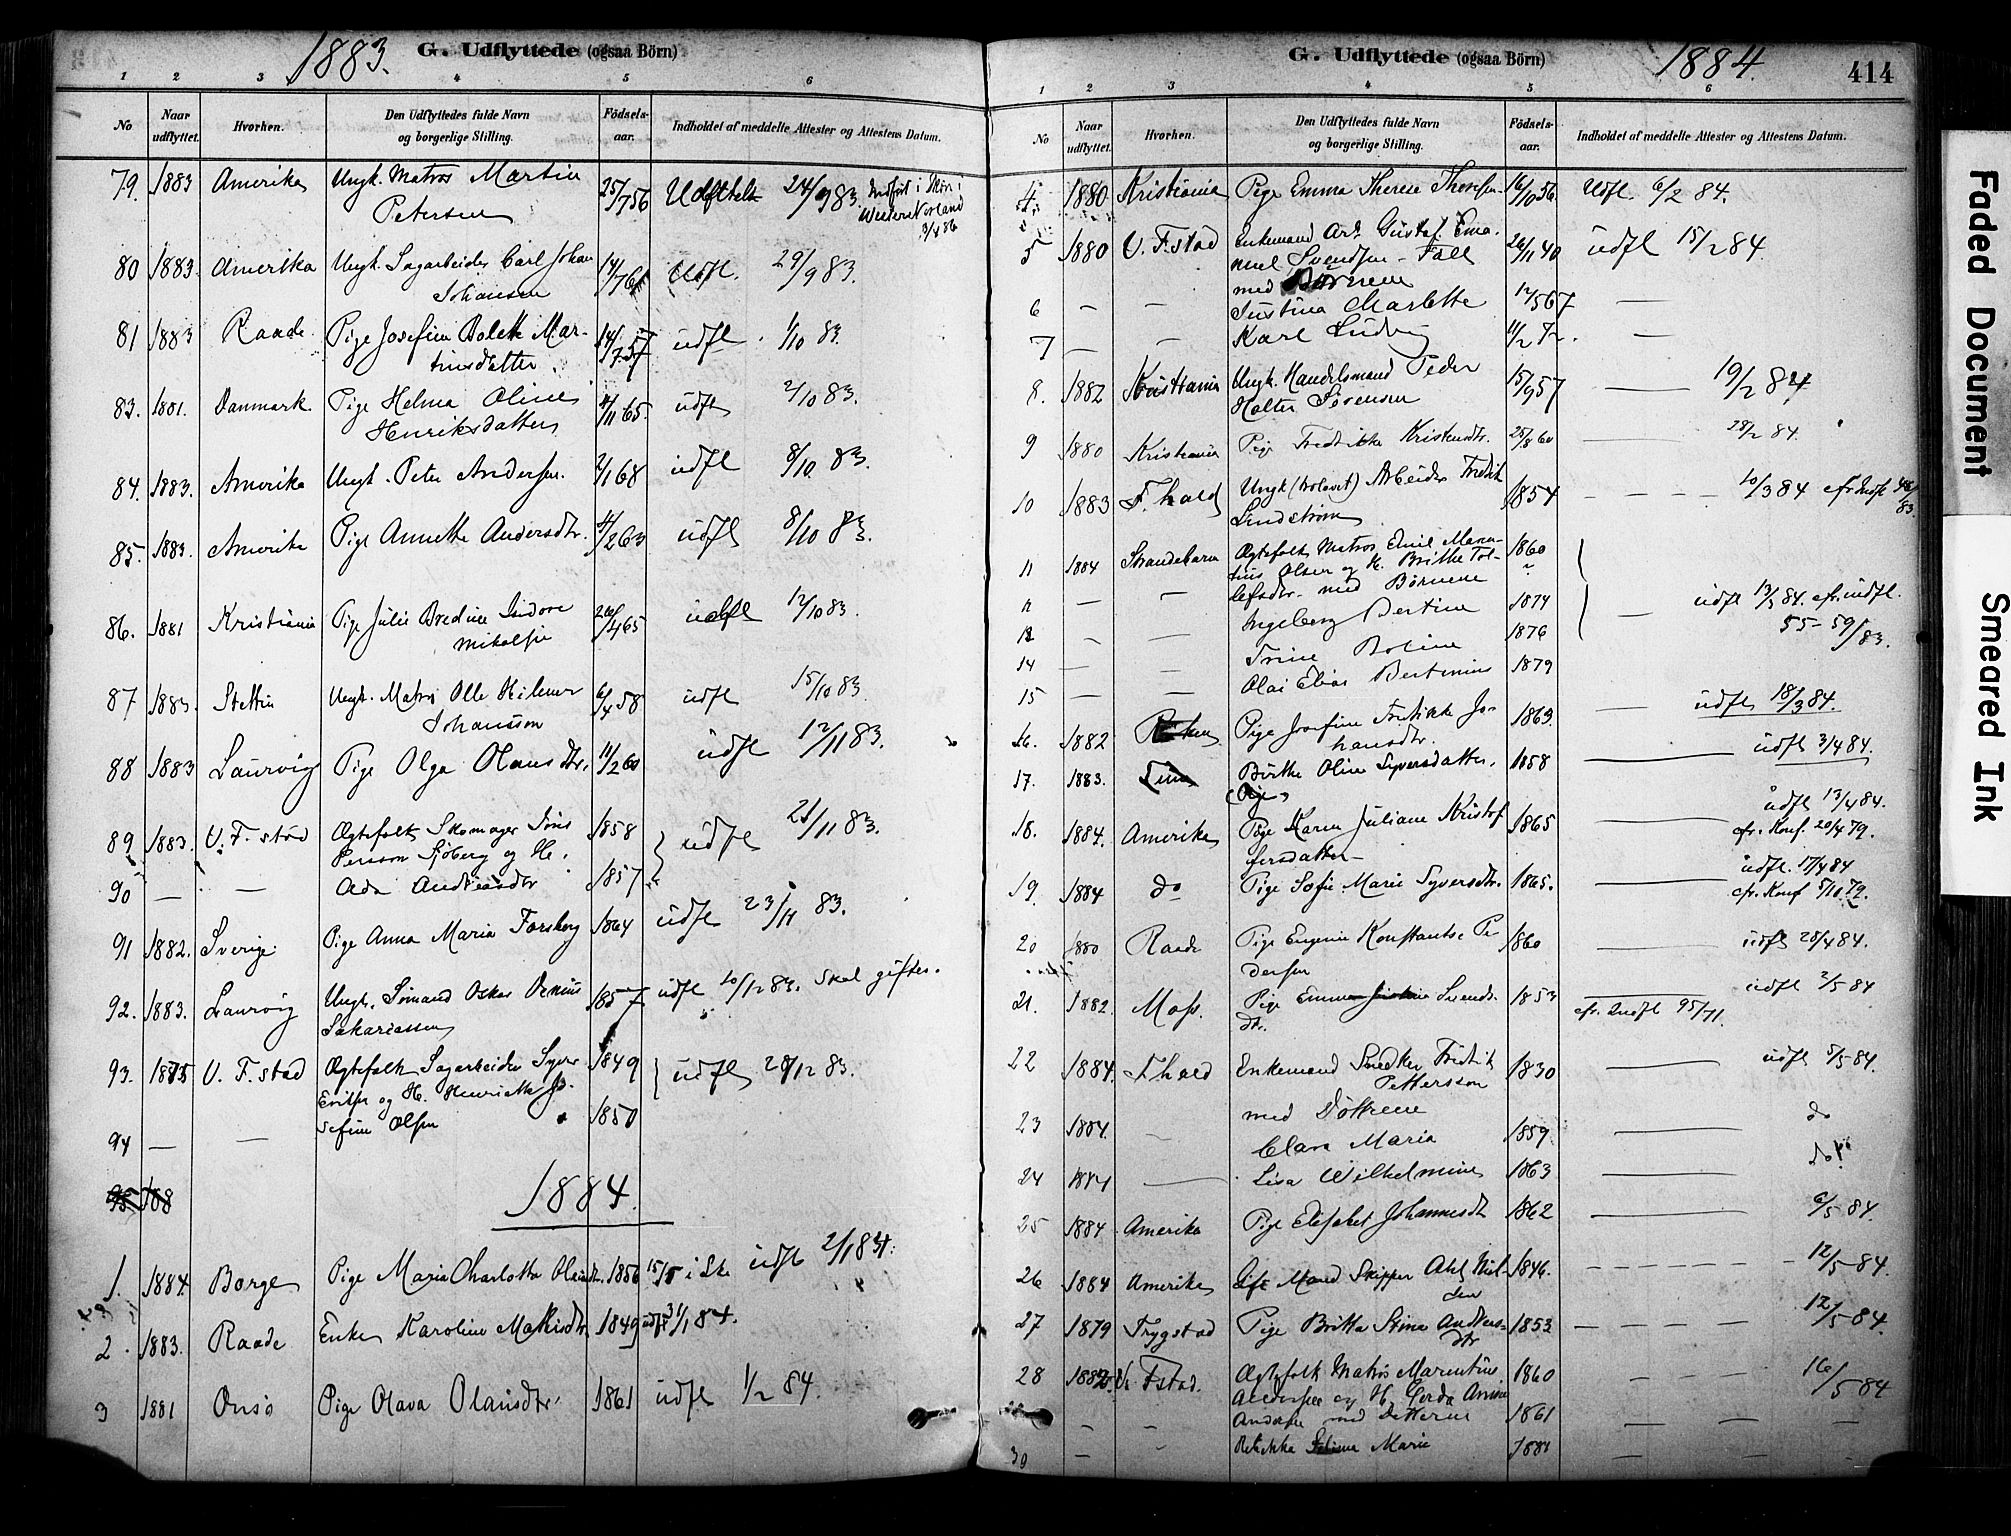 1883. G. Udflyttede (ogsaa Börn)
1 2 3 4 5 6
No Naar udflyttet. Hvorhen. Den Udflyttedes fulde Navn og borgerlige Stilling. Födsels-aar. Indholdet af meddelte Attester og Attestens Datum.
79. 1883 Amerika Ungk. Matros Martin 25/7 56 Udfl 24/9 83.
Petersen
80 1883. Amerika Ungk. Sagarbeider Carl Johan 14/7 61 Udfl. 29/9 83.
Johansen
81 1883 Raade. Pige Josefine Bolette Mar- 14/7 57 udfl. 1/10 83.
tinsdatter.
83. 1881. Danmark. Pige Helma Oline 65. udfl 2/10 83.
Henriksdatter
84. 1883. Amerika Ungk. Peter Andersen. 2/1 68 udfl 8/10 83.
85. 1883. Amerika Pige Annette Andersdtr. 4/2 63 udfl 8/10 83.
86. 1881 Kristiania Pige Julie Bredine Isidore 26/4 65 udfl 12/10 83.
Mikalsen
87 1883. Stettin Ungk. Matros Olle Hilmer 6/4 58 udfl 15/10 83.
Johansson
88 1883 Laurvig Pige Olga Olausdtr. 11/2 60 udfl 12/11 83.
89 1883. V. F. stad Ægtefolk Skomager Jöns 1858 udfl 21/11 83.
Persson Sjöberg og H.
90 — — Ada Andreasdtr 1857
91 1882. Sverige Pige Anna Maria Forsberg 1864 udfl 23/11 83.
92. 1883. Laurvig Ungk. Sömand Oskar 1857 udfl 10/12 83. Skal giftes.
Sakariassen
93. 1875 V. F. stad Ægtefolk Sagarbeider Syver 1849 udfl 28/12 83.
og H. Henriette Jo-
sefine Olsen 1850
94 — —
1884.
1. 1884. Borge Pige Maria Charlotta 1856 udfl 2/1 84.
2. 1883. Raade Enke Karoline 1849 udfl 31/1 84.
3 1881 Onsö Pige Olava Olausdtr. 1861 udfl 1/2 84.
G. Udflyttede (ogsaa Börn) 1884. 414
1 2 3 4 5 6
No Naar udflyttet. Hvorhen. Den Udflyttedes fulde Navn og borgerlige Stilling. Födsels-aar. Indholdet af meddelte Attester og Attestens Datum.
4. 1880 Kristiania Pige Emma Therese 16/10 56. Udfl. 6/2 84.
5 1880 V. F. stad Enkemand Arb. Gustaf Ema- 26/11 40 udfl 15/2 84.
nuel Svendsen - Fall
med Börnene
6 — — Justina Marlotte 12/5 67 —
7 — — Karl Ludvig —
8. 1882 Kristiania Ungk. Handelsmand Peder 15/9 57 — 19/2 84
Holter Sörensen
9 1880 Kristiania Pige Fredrikke Kristensdtr. 25/8 60 — 28/2 84.
10 1883 F. hald Ungk. Arbeider Fredrik 1854 — — — — 10/3 84
Lindström
11 1884 Strandebarm Ægtefolk Matros Emil 1860
Olsen og H. Brithe Tol-
lefsdtr. med Börnene udfl 13/3 84.
— — Ingeborg Bertine 1874 — 55-59/83.
— — Trine Boline 1876
14 — — Olai Elias Bertinius 1879
15 — —
16. 1882 Pige Josefine Fredrikke Jo- 1863. — udfl 18/3 84.
hansdtr.
17. 1883. Birthe Oline Syversdatter. 1858 — udfl 3/4 84.
(Pige)
18. 1884. Amerika Pige Karen Juliane Kristof 1865 — udfl 13/4 84.
fersdatter — cfr. Konf. 20/4 79.
19. 1884 do Pige Sofie Marie Syversdtr. 1865. — udfl. 17/4 84
cfr. Konf 5/10 79.
20 1880 Raade Pige Eugenie Konstantse Pe 1860 — udfl 28/4 84.
dersen
21. 1882. Moss. Pige Emma Svends- 1853 udfl 2/5 84
dtr. cfr. Indfl 95/71.
22 1884. F. hald Enkemand Snedker Fredrik 1830 — udfl 5/5 84.
Pettersson
med Döttrene
23 1884. — Clara Maria 1859. — do
24 1884 — Lisa Wilhelmine 1863 — do
25 1884 Amerika Pige Elisabet Johannesdtr 1862 — 6/5 84.
26 1884 Amerika Gift Mand Skipper 1846. — 12/5 84.
27 1879 Trygstad Pige Britta Stina Anders- 1853 — — — — 12/5 84.
dtr
28 V. Fstad. Ægtefolk Matros Marentius 1860 — — — 16/5 84
Andersen og H. Gerda
med Datteren 1861 — — —
30 — — Marie 1881 — — —
Faded Document
Smeared Ink